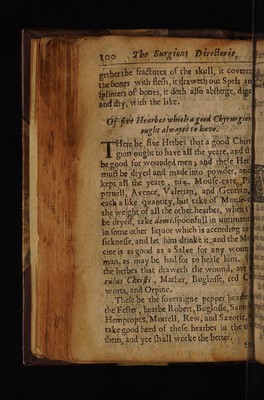 100 The Surgions Directorie,
gether the fractures of the skull, it coveret
the bones with flesh, it draweth out Spels an
splinters of bones, it doth also absterge, dige
and dry, with the like.
Of five Hearbes which a good Chyrurgion
ought alwayes to have.
THere be five Herbes that a good Chiru
gion ought to have all the yeare, and th
be good for wounded men; and these Her
must be dryed and made into powder, and
kept all the yeare, viz. Mouse-eare, Pi
pernell, Avence, Valerian, and Gentian,
each a like quantity, but take of Mouse-e
the weight of all the other hearbes, when t
be dryed, take demi spoonfull in
in some other liquor which is according to
sicknesse, and let him drinke it, and the Me
cine is as good as a Salve for any woun
man, as may be had for to heale him.
the herbes that draweth the wound, are
Christi, Mather, Buglosse, red C
worts, and Orpine.
These be the soveraigne pepper hearbe
the Fester, hearbe Robert, Buglosse, San
Hempropes, Morrell, Rew, and Savorie,
take good heed of these hearbes in the
them, and yee shall worke the better.